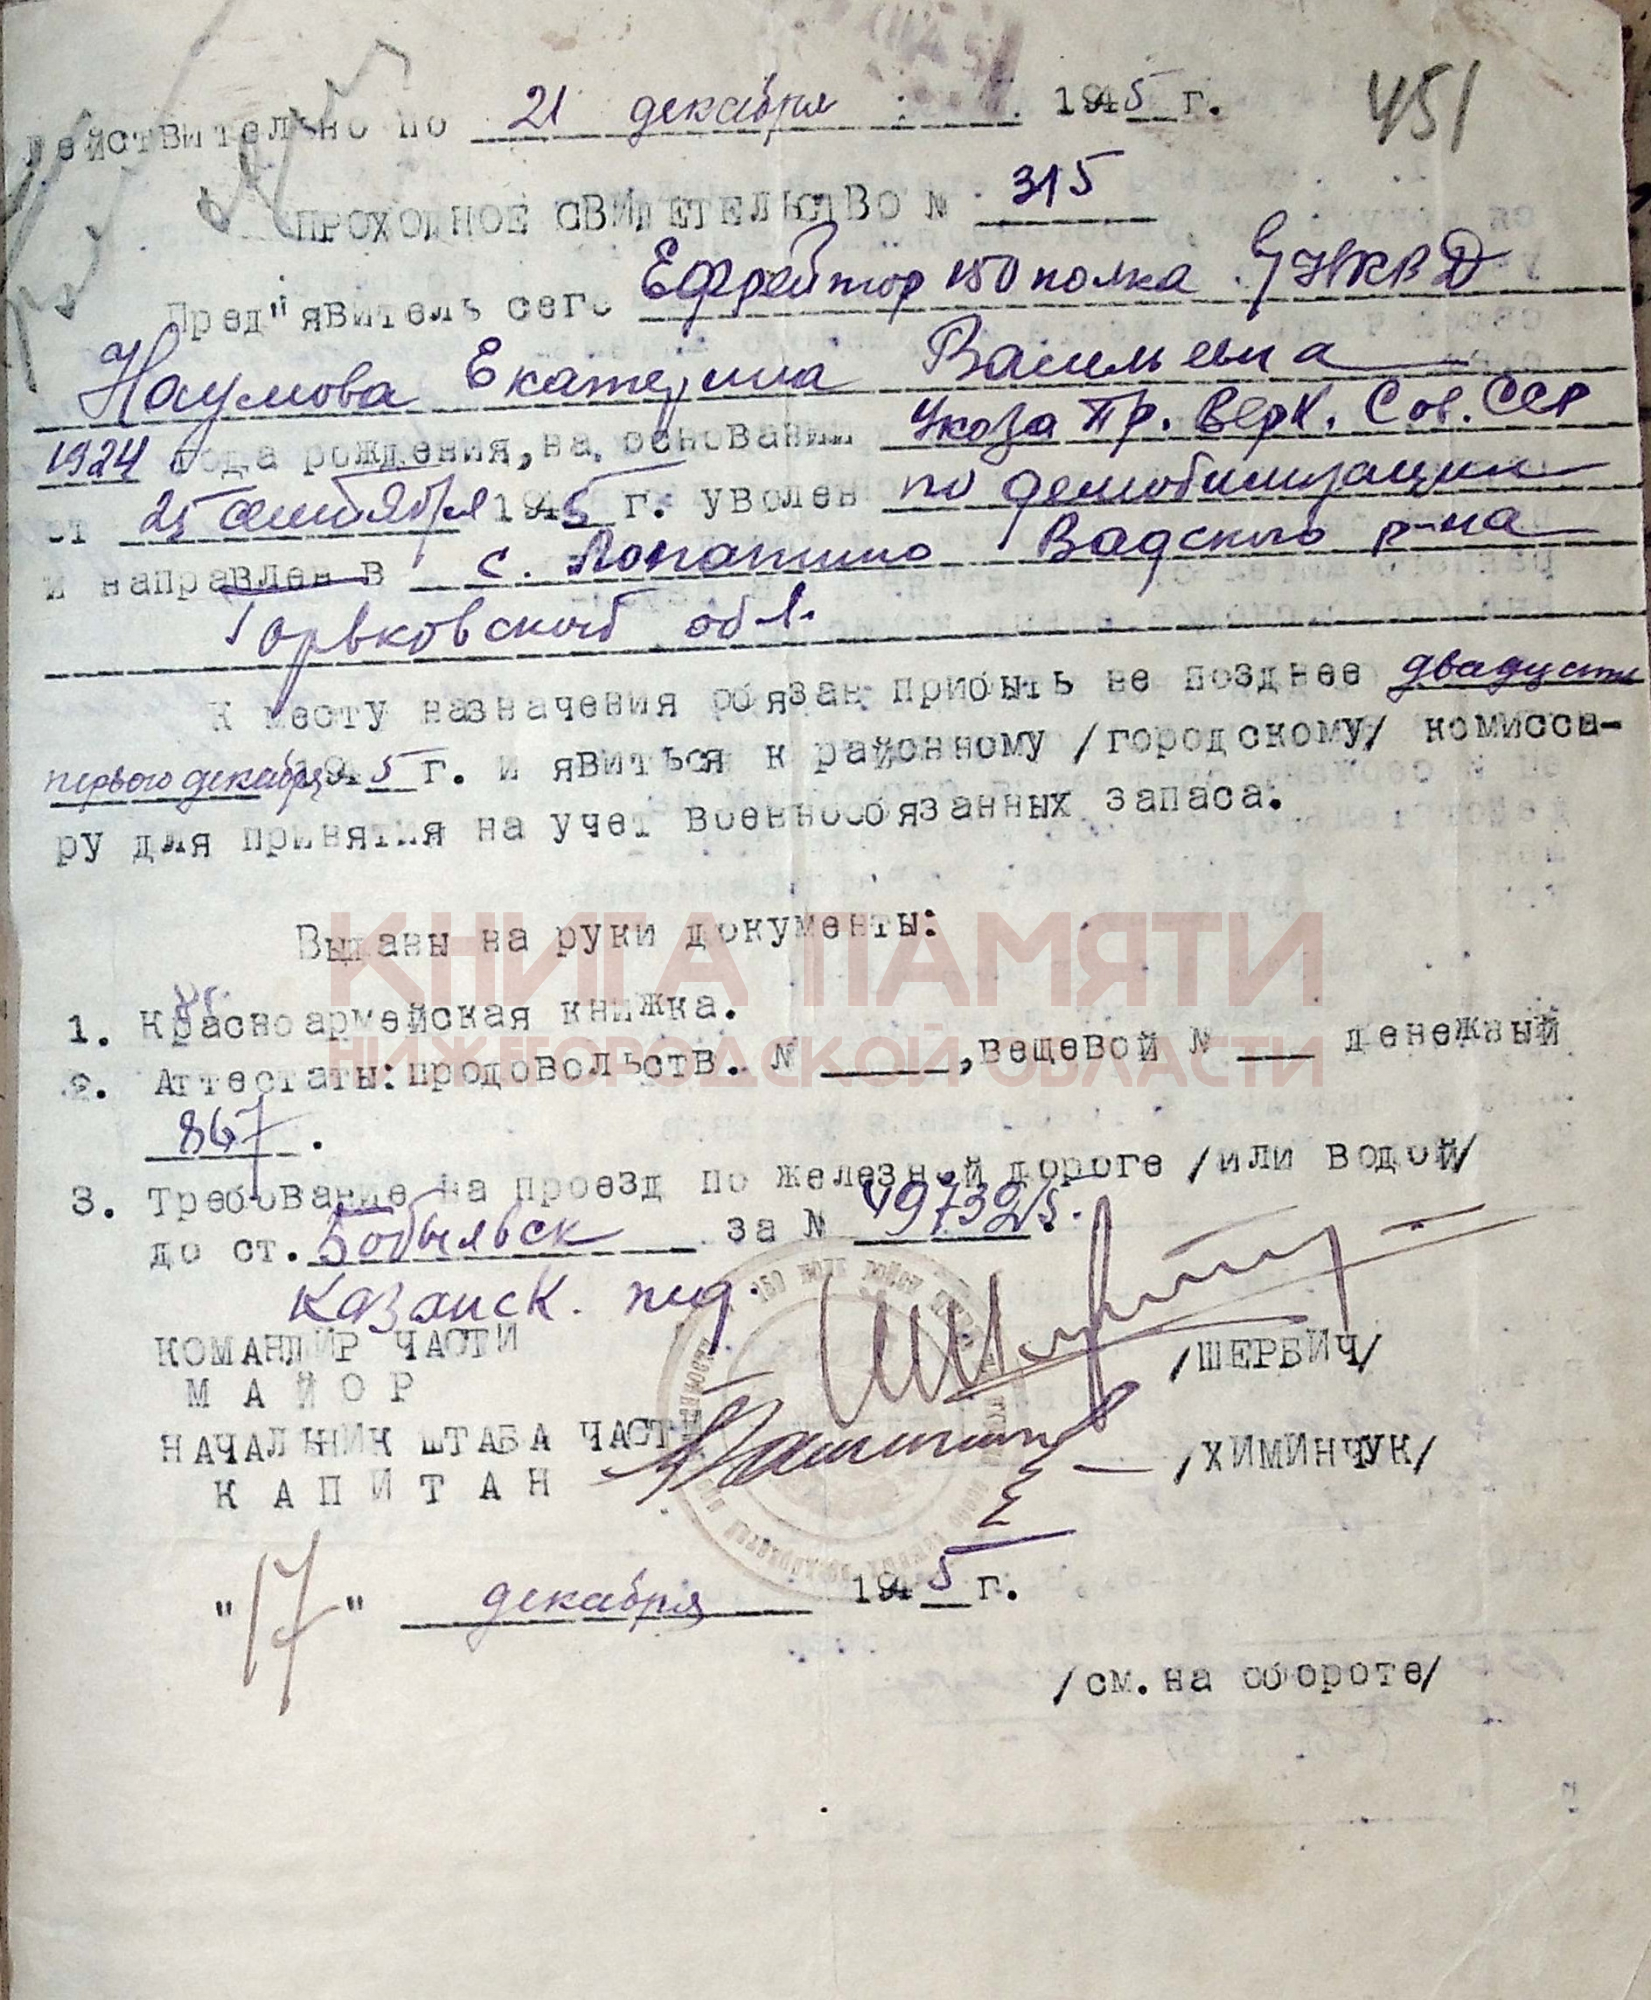 451
Действительно по 21 декабря 1945 г.
ПРОХОДНОЕ СВИДЕТЕЛЬСТВО № 315
Пред"явитель сего Ефрейтор 150 полка НКВД
Наумова Екатерина Васильевна
1924 года рождения, на основании Указа Пр. Верх. Сов. ССР
от 25 сентября 1945 г. уволен по демобилизации
и направлен в с. Лопатино Вадского р-на
Горьковской обл.
К месту назначения обязан прибыть не позднее двадцать
первого декабря 1945 г. и явиться к районному /городскому/ комисса-
ру для принятия на учет военнообязанных запаса.
Выданы на руки документы:
КНИГА ПАМЯТИ
НИЖЕГОРОДСКОЙ ОБЛАСТИ
1. Красноармейская книжка.
2. Аттестаты: продовольств. № ____, вещевой № ___ денежный
867.
3. Требование на проезд по железной дороге /или водой/
до ст. Бобыльск за № 497392/5.
Казанск. жд.
КОМАНДИР ЧАСТИ
МАЙОР /ШЕРБИЧ/
НАЧАЛЬНИК ШТАБА ЧАСТИ
КАПИТАН /ХИМИНЧУК/
"17" декабря 1945 г.
/см. на обороте/